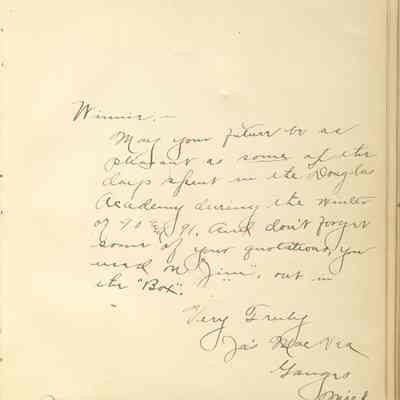 Winnie:—
May your future be as
pleasant as some of the
days spent in the Douglas
Academy during the winter
of 90 & 91. And don't forget
some of your quotations you
used on "Jim", out in
the "Box".
Very Truly
Jas Mac Vea
Ganges
Mich